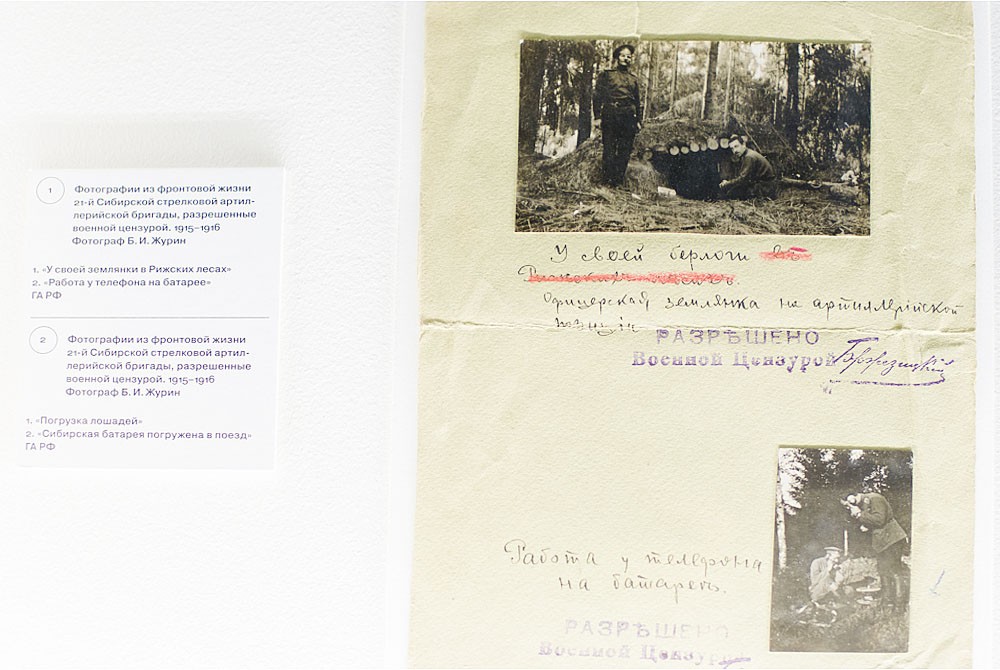 1 Фотографии из фронтовой жизни
21-й Сибирской стрелковой артил-
лерийской бригады, разрешенные
военной цензурой. 1915–1916
Фотограф Б. И. Журин
1. «У своей землянки в Рижских лесах»
2. «Работа у телефона на батарее»
ГА РФ
2 Фотографии из фронтовой жизни
21-й Сибирской стрелковой артил-
лерийской бригады, разрешенные
военной цензурой. 1915–1916
Фотограф Б. И. Журин
1. «Погрузка лошадей»
2. «Сибирская батарея погружена в поезд»
ГА РФ
У своей берлоги
Офицерская землянка на артиллерійской
позиціи
РАЗРѢШЕНО
Военной Цензурой
Работа у телефона
на батареѣ.
РАЗРѢШЕНО
Военной Цензурой